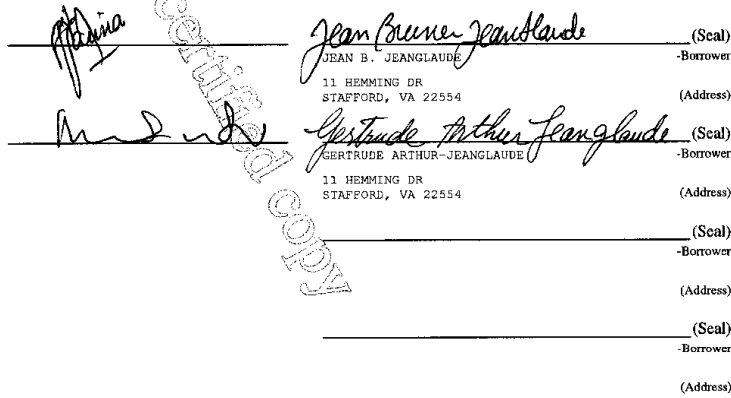 Jean Bruner Jeanglaude (Seal)
JEAN B. JEANGLAUDE -Borrower
11 HEMMING DR
STAFFORD, VA 22554 (Address)
Gertrude Arthur Jeanglaude (Seal)
GERTRUDE ARTHUR-JEANGLAUDE -Borrower
11 HEMMING DR
STAFFORD, VA 22554 (Address)
(Seal)
-Borrower
(Address)
(Seal)
-Borrower
(Address)
certified copy